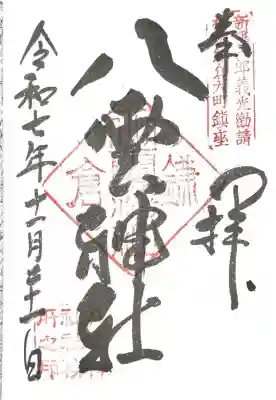 新羅三郎義光勧請
鎌倉大町鎮座
奉拝
八雲神社
令和七年十一月二十一日